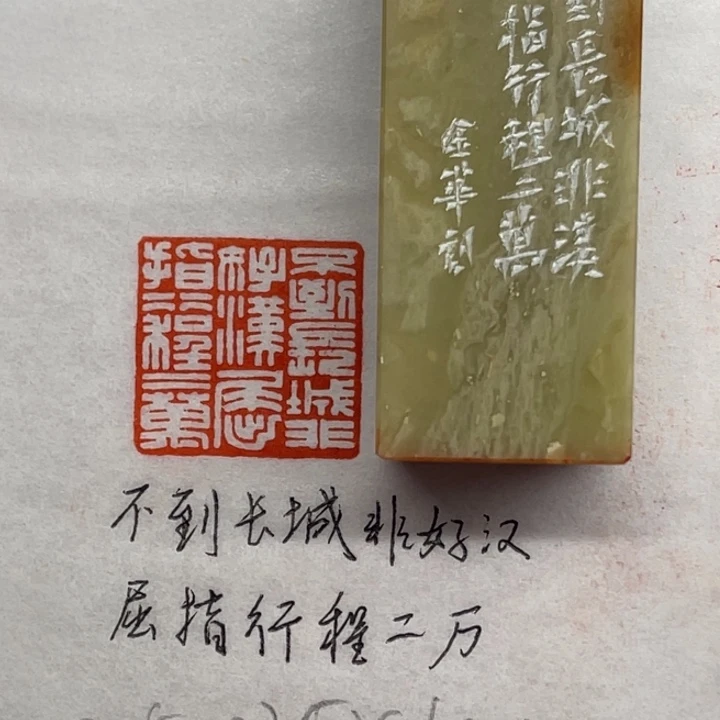 到長城非漢
指行程二萬
金華刻
不到長城非
好漢屈
指行程二萬
不到长城非好汉
屈指行程二万